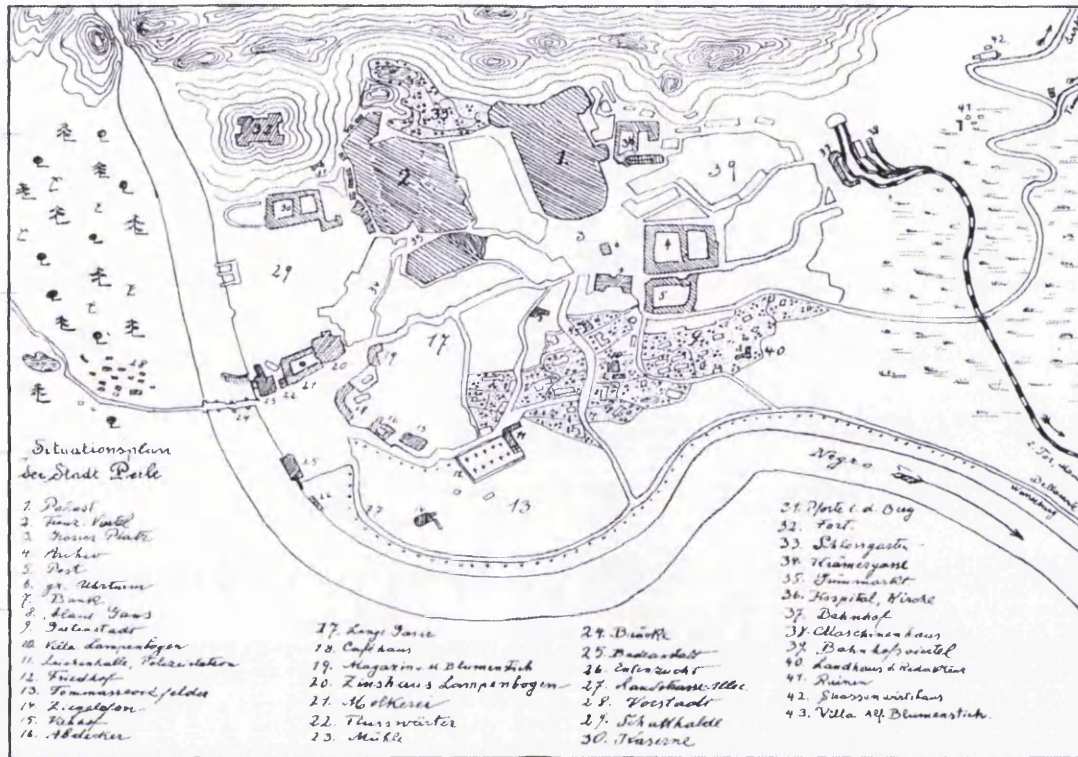 Situationsplan
der Stadt Perle
1. Palast
2. Franz. Viertel
3 Grosser Platz
4 Archiv
5. Post
6. gr. Uhrturm
7. Bank
8. blaue Gans
9. Gartenstadt
10. Villa Lampenbogen
11. Leichenhalle, Polizeistation
12. Friedhof
13. Tommasseevic felder
14. Ziegelofen
15. Viehhof
16. Abdecker
17. Lange Gasse
18. Caféhaus
19. Magazin v. Blumenstich
20. Zinshaus Lampenbogen
21. Molkerei
22. Flusswärter
23. Mühle
24. Brücke
25. Badeanstalt
26. Entenzucht
27. Landstrasse-Allee
28. Vorstadt
29. Schutthalde
30. Kaserne
31. Pforte i. d. Berg
32. Fort.
33. Schlossgarten
34. Krämergasse
35. Grünmarkt
36. Hospital, Kirche
37. Bahnhof
38. Maschinenhaus
39. Bahnhofsviertel
40. Landhaus d. Redakteur
41. Ruinen
42. Strassenwirtshaus
43. Villa Alf. Blumenstich.
Negro
1.
2
3
5
12
13
17
19
20
21
22
23
24
25
27
28
29
30
32
33
34
35
39
40
41
42.